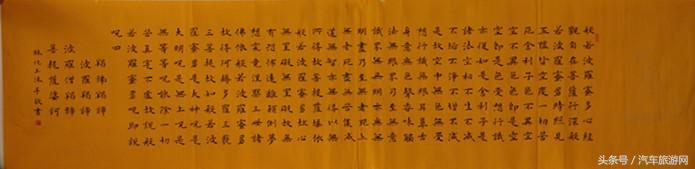 般若波羅蜜多心經
觀自在菩薩行深般
若波羅蜜多時照見
五蘊皆空度一切苦
厄舍利子色不異空
空不異色色即是空
空即是色受想行識
亦復如是舍利子是
諸法空相不生不滅
不垢不淨不增不減
是故空中無色無受
想行識無眼耳鼻舌
身意無色聲香味觸
法無眼界乃至無意
識界無無明亦無無
明盡乃至無老死亦
無老死盡無苦集滅
道無智亦無得以無
所得故菩提薩埵依
般若波羅蜜多故心
無罣礙無罣礙故無
有恐怖遠離顛倒夢
想究竟涅槃三世諸
佛依般若波羅蜜多
故得阿耨多羅三藐
三菩提故知般若波
羅蜜多是大神咒是
大明咒是無上咒是
無等等咒能除一切
苦真實不虛故說般
若波羅蜜多咒即說
咒曰
揭諦揭諦
波羅揭諦
波羅僧揭諦
菩提薩婆訶
沐手敬書
头条号／汽车旅游网